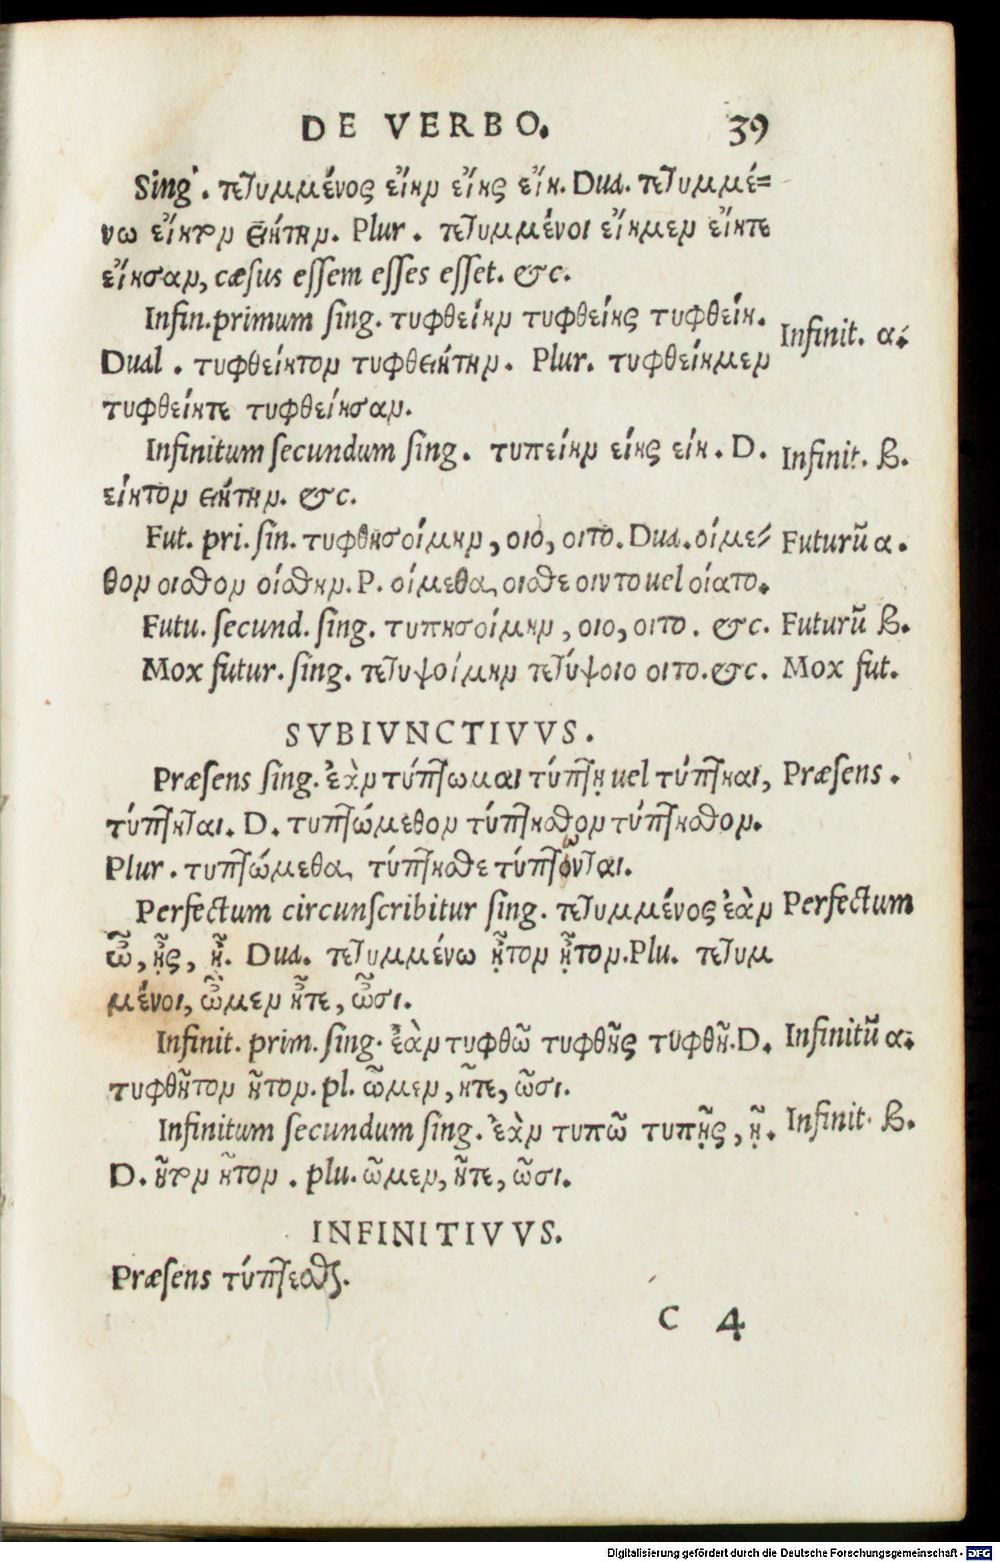 DE VERBO. 39
Sing. τετυμμένος εἴην εἴης εἴη. Dua. τετυμμέ=
νω εἴητον εἰήτην. Plur. τετυμμένοι εἴημεν εἴητε
εἴησαν, cæsus essem esses esset. &c.
Infin. primum sing. τυφθείην τυφθείης τυφθείη. Infinit. α.
Dual. τυφθείητον τυφθειήτην. Plur. τυφθείημεν
τυφθείητε τυφθείησαν.
Infinitum secundum sing. τυπείην είης είη. D. Infinit. β.
είητον ειήτην. &c.
Fut. pri. sin. τυφθησοίμην, οιο, οιτο. Dua. οίμε= Futurũ α.
θον οισθον οίσθην. P. οίμεθα, οισθε οιντο uel οίατο.
Futu. secund. sing. τυπησοίμην, οιο, οιτο. &c. Futurũ β.
Mox futur. sing. τετυψοίμην τετύψοιο οιτο. &c. Mox fut.
SVBIVNCTIVVS.
Præsens sing. ἐὰν τύπτωμαι τύπτῃ uel τύπτηαι, Præsens.
τύπτηται. D. τυπτώμεθον τύπτησθον τύπτησθον.
Plur. τυπτώμεθα, τύπτησθε τύπτονται.
ω
Perfectum circunscribitur sing. τετυμμένος ἐὰν Perfectum
ὦ, ᾖς, ᾖ. Dua. τετυμμένω ᾖτον ᾖτον. Plu. τετυμ
μένοι, ὦμεν ἦτε, ὦσι.
Infinit. prim. sing. ἐὰν τυφθῶ τυφθῇς τυφθῇ. D. Infinitũ α.
τυφθῆτον ῆτον. pl. ῶμεν, ῆτε, ῶσι.
Infinitum secundum sing. ἐὰν τυπῶ τυπῇς, ῇ. Infinit. β.
D. ῆτον ῆτον. plu. ῶμεν, ῆτε, ῶσι.
INFINITIVVS.
Præsens τύπτεσθαι.
C 4
Digitalisierung gefördert durch die Deutsche Forschungsgemeinschaft - DFG